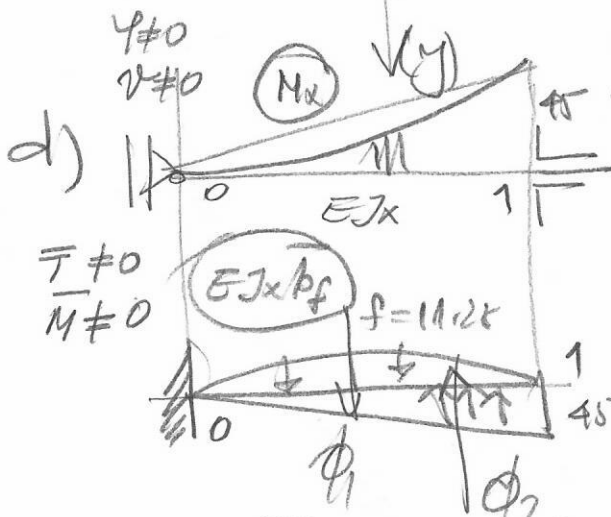 φ≠0
v≠0
Mx
(y)
45
d)
0
EJx
1
T̄ ≠0
M̄ ≠0
EJx pf
f=11.25
1
0
45
ϕ1
ϕ2